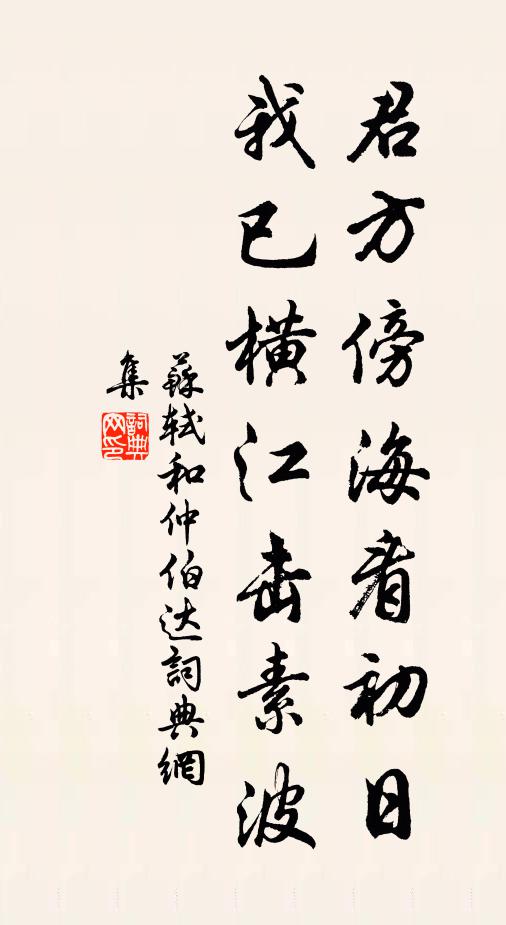 君方傍海看初日
我已橫江击素波
蘇轼和仲伯达詞典網
集
詞典网印